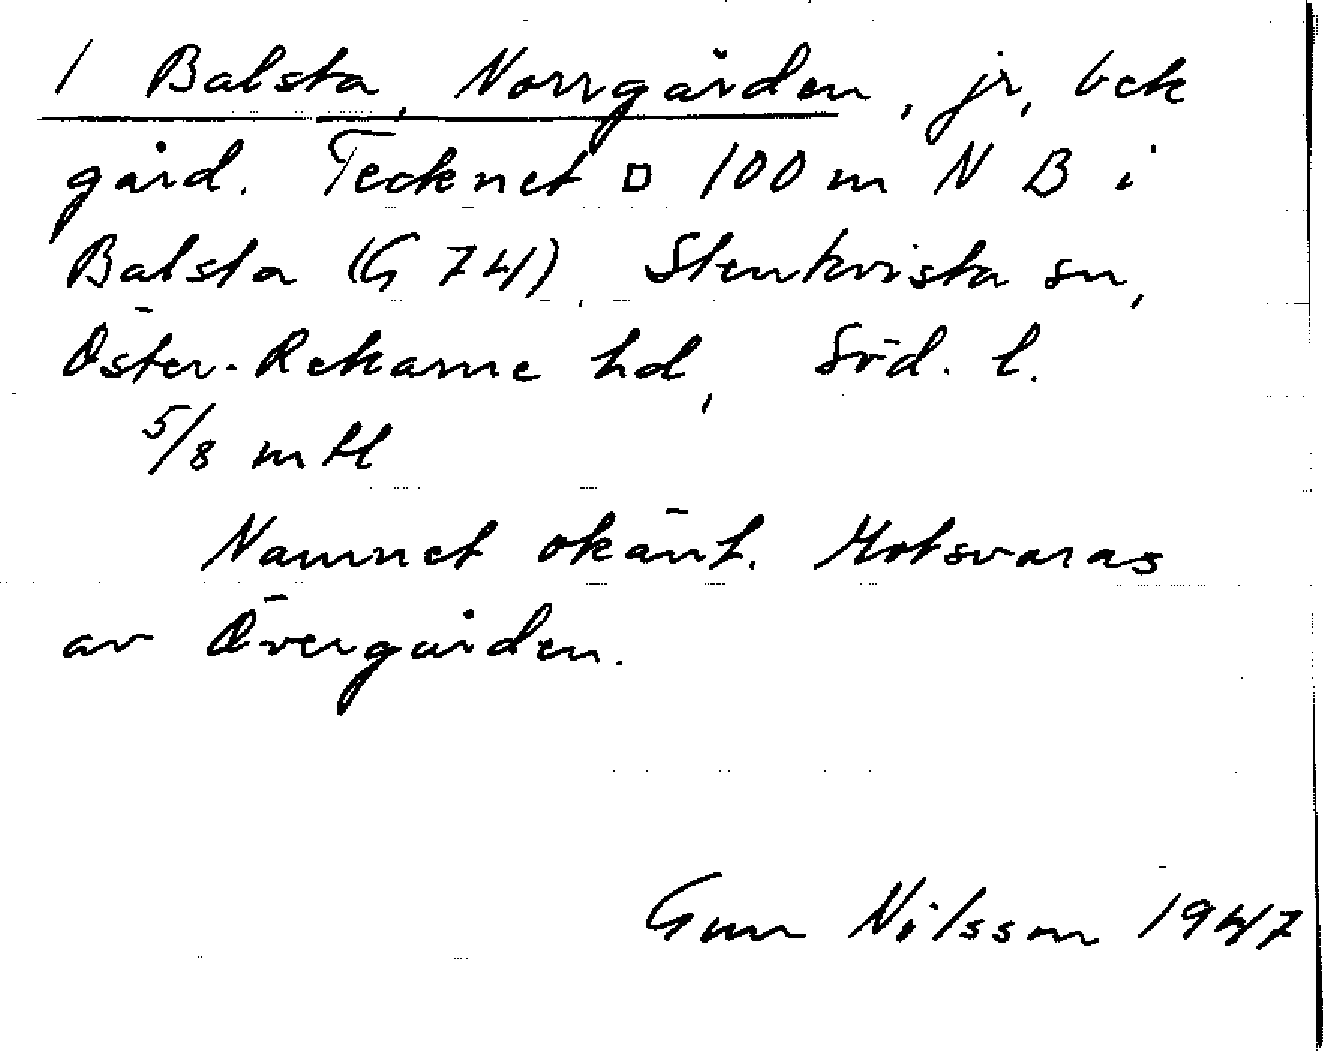 1 Balsta, Norrgården, jr, bek
gård. Tecknet □ 100 m N B i
Balsta (G 74), Stenkvista sn,
Öster-Rekarne hd, Söd. l.
5/8 mtl
Namnet okänt. Motsvaras
av Övergården.
Gun Nilsson 1947